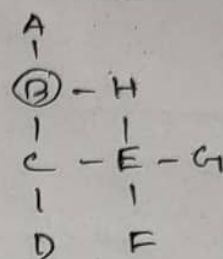 A
B - H
C - E - G
D F